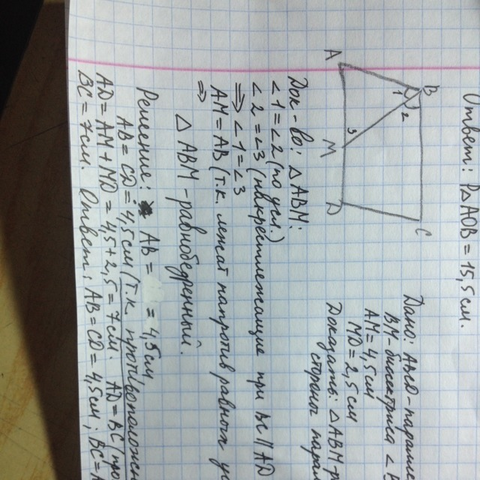 Ответ: P△AOB = 15,5 см.
Дано: ABCD-паралле
BM-биссектриса ∠B
AM = 4,5 см
MD = 2,5 см
Доказать: △ABM-р
стороны парал
A
B
1
2
3
M
D
C
Док-во: △ABM:
∠1 = ∠2 (по усл.)
∠2 = ∠3 (накрестлежащие при BC ∥ AD
⇒ ∠1 = ∠3
AM = AB (т.к. лежат напротив равных уг
⇒
△ABM-равнобедренный.
Решение: AB = = 4,5 см
AB = CD = 4,5 см (т.к. противоположн
AD = AM + MD = 4,5 + 2,5 = 7 см. AD = BC (про
BC = 7 см. Ответ: AB = CD = 4,5 см; BC = A